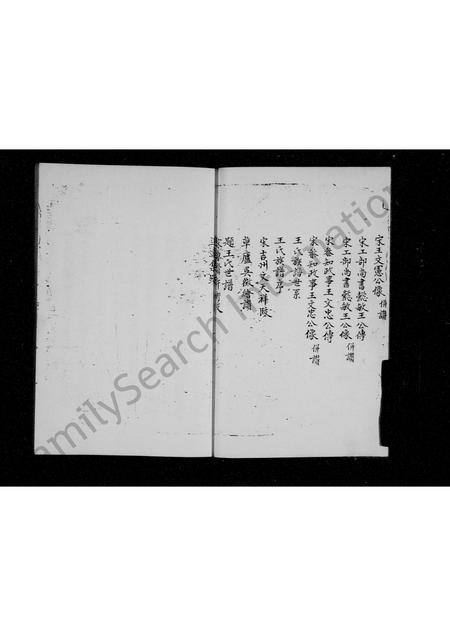 宋王文憲公像 併讚
宋工部尚書懿敏王公傳
宋工部尚書懿敏王公像 併讚
宋參知政事王文忠公傳
宋參知政事王文忠公像 併讚
王氏族譜世系
王氏族譜序
宋吉州文天祥跋
草廬吳澂繪讚
題王氏世譜
FamilySearch International